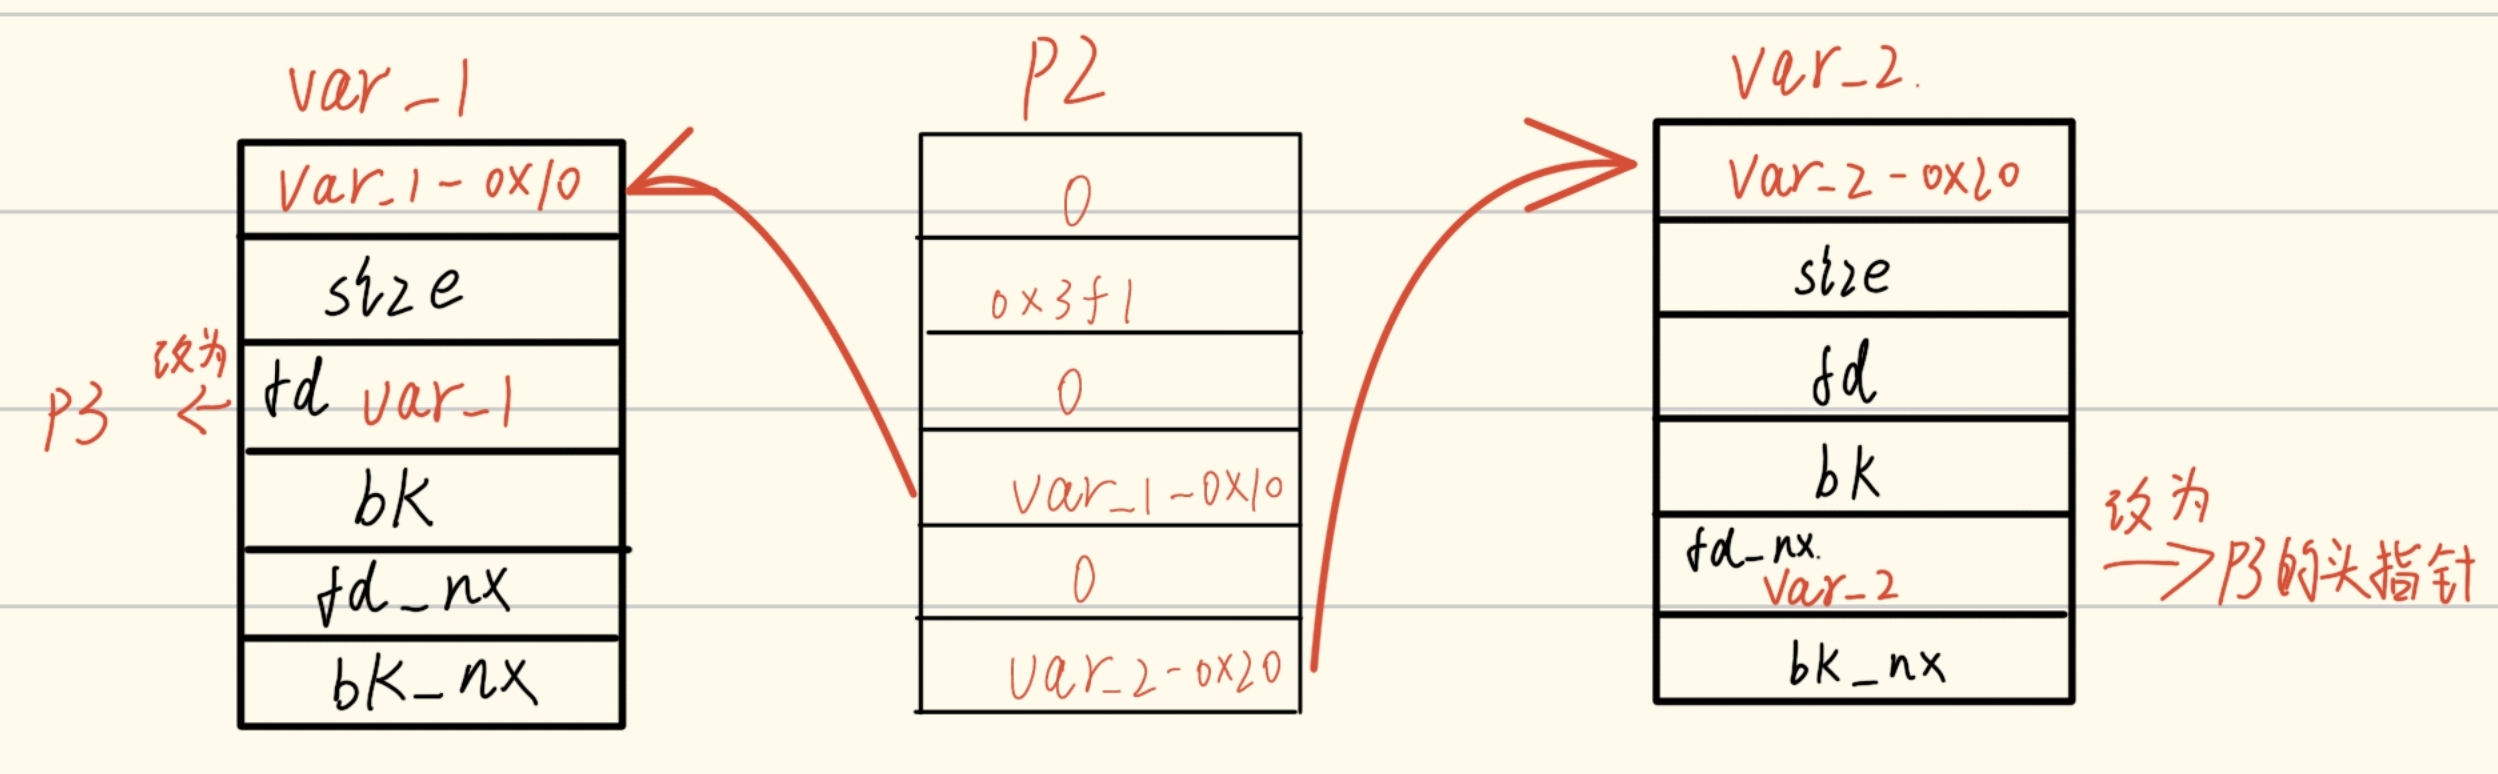 var_1
var_1-0x10
size
fd var_1
改为
P3
bk
fd_nx
bk_nx
P2
0
0x3f1
0
var_1-0x10
0
var_2-0x20
var_2.
var_2-0x20
size
fd
bk
fd_nx.
var_2
改为
P3的头指针
bk_nx